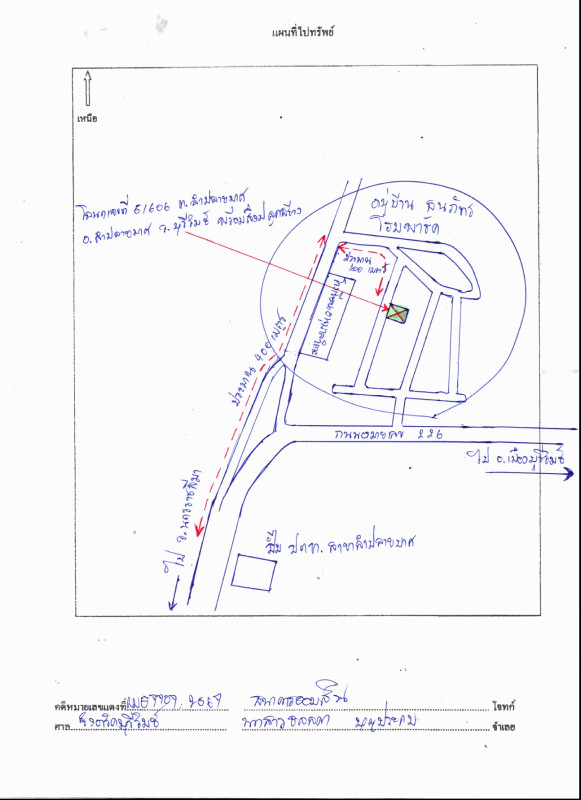 แผนที่ไปทรัพย์
เหนือ
โฉนดเลขที่ 51606 ต.ลำปลายมาศ
อ.ลำปลายมาศ จ.บุรีรัมย์ พร้อมสิ่งปลูกสร้าง
หมู่บ้าน
โฮมพาร์ค
ประมาณ
100 เมตร
ประมาณ 400 เมตร
ถนนหมายเลข 226
ไป อ.เมืองบุรีรัมย์
ไป จ.นครราชสีมา
ปั๊ม ปตท. สาขาลำปลายมาศ
คดีหมายเลขแดงที่
ธนาคารออมสิน โจทก์
ศาล จังหวัดบุรีรัมย์ นางสาว จำเลย